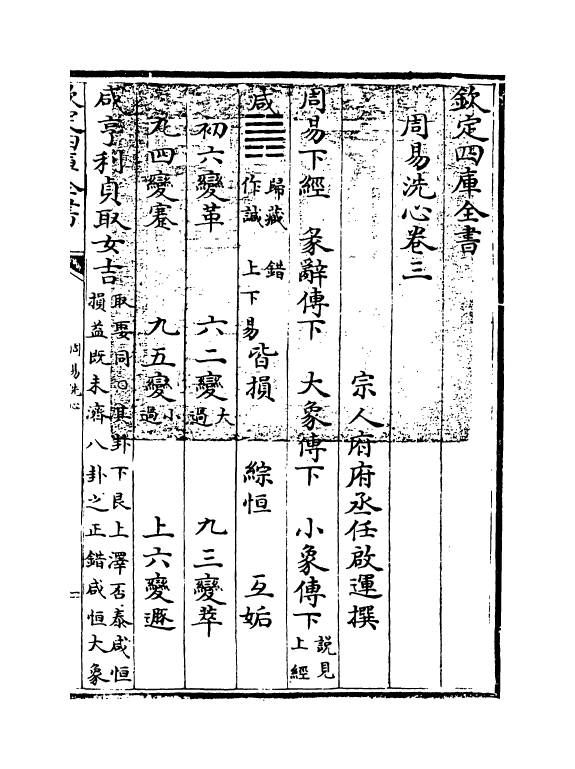 欽定四庫全書
周易洗心卷三
宗人府府丞任啟運撰
周易下經　彖辭傳下　大象傳下　小象傳下說見上經
咸䷞歸藏作諴　錯上下易皆損　綜恒　互姤
初六變革　六二變大過　九三變萃
九四變蹇　九五變小過　上六變遯
咸亨利貞取女吉取娶同○其卦下艮上澤否泰咸恒損益既未濟八卦之正錯咸恒大象
欽定四庫全書
周易洗心